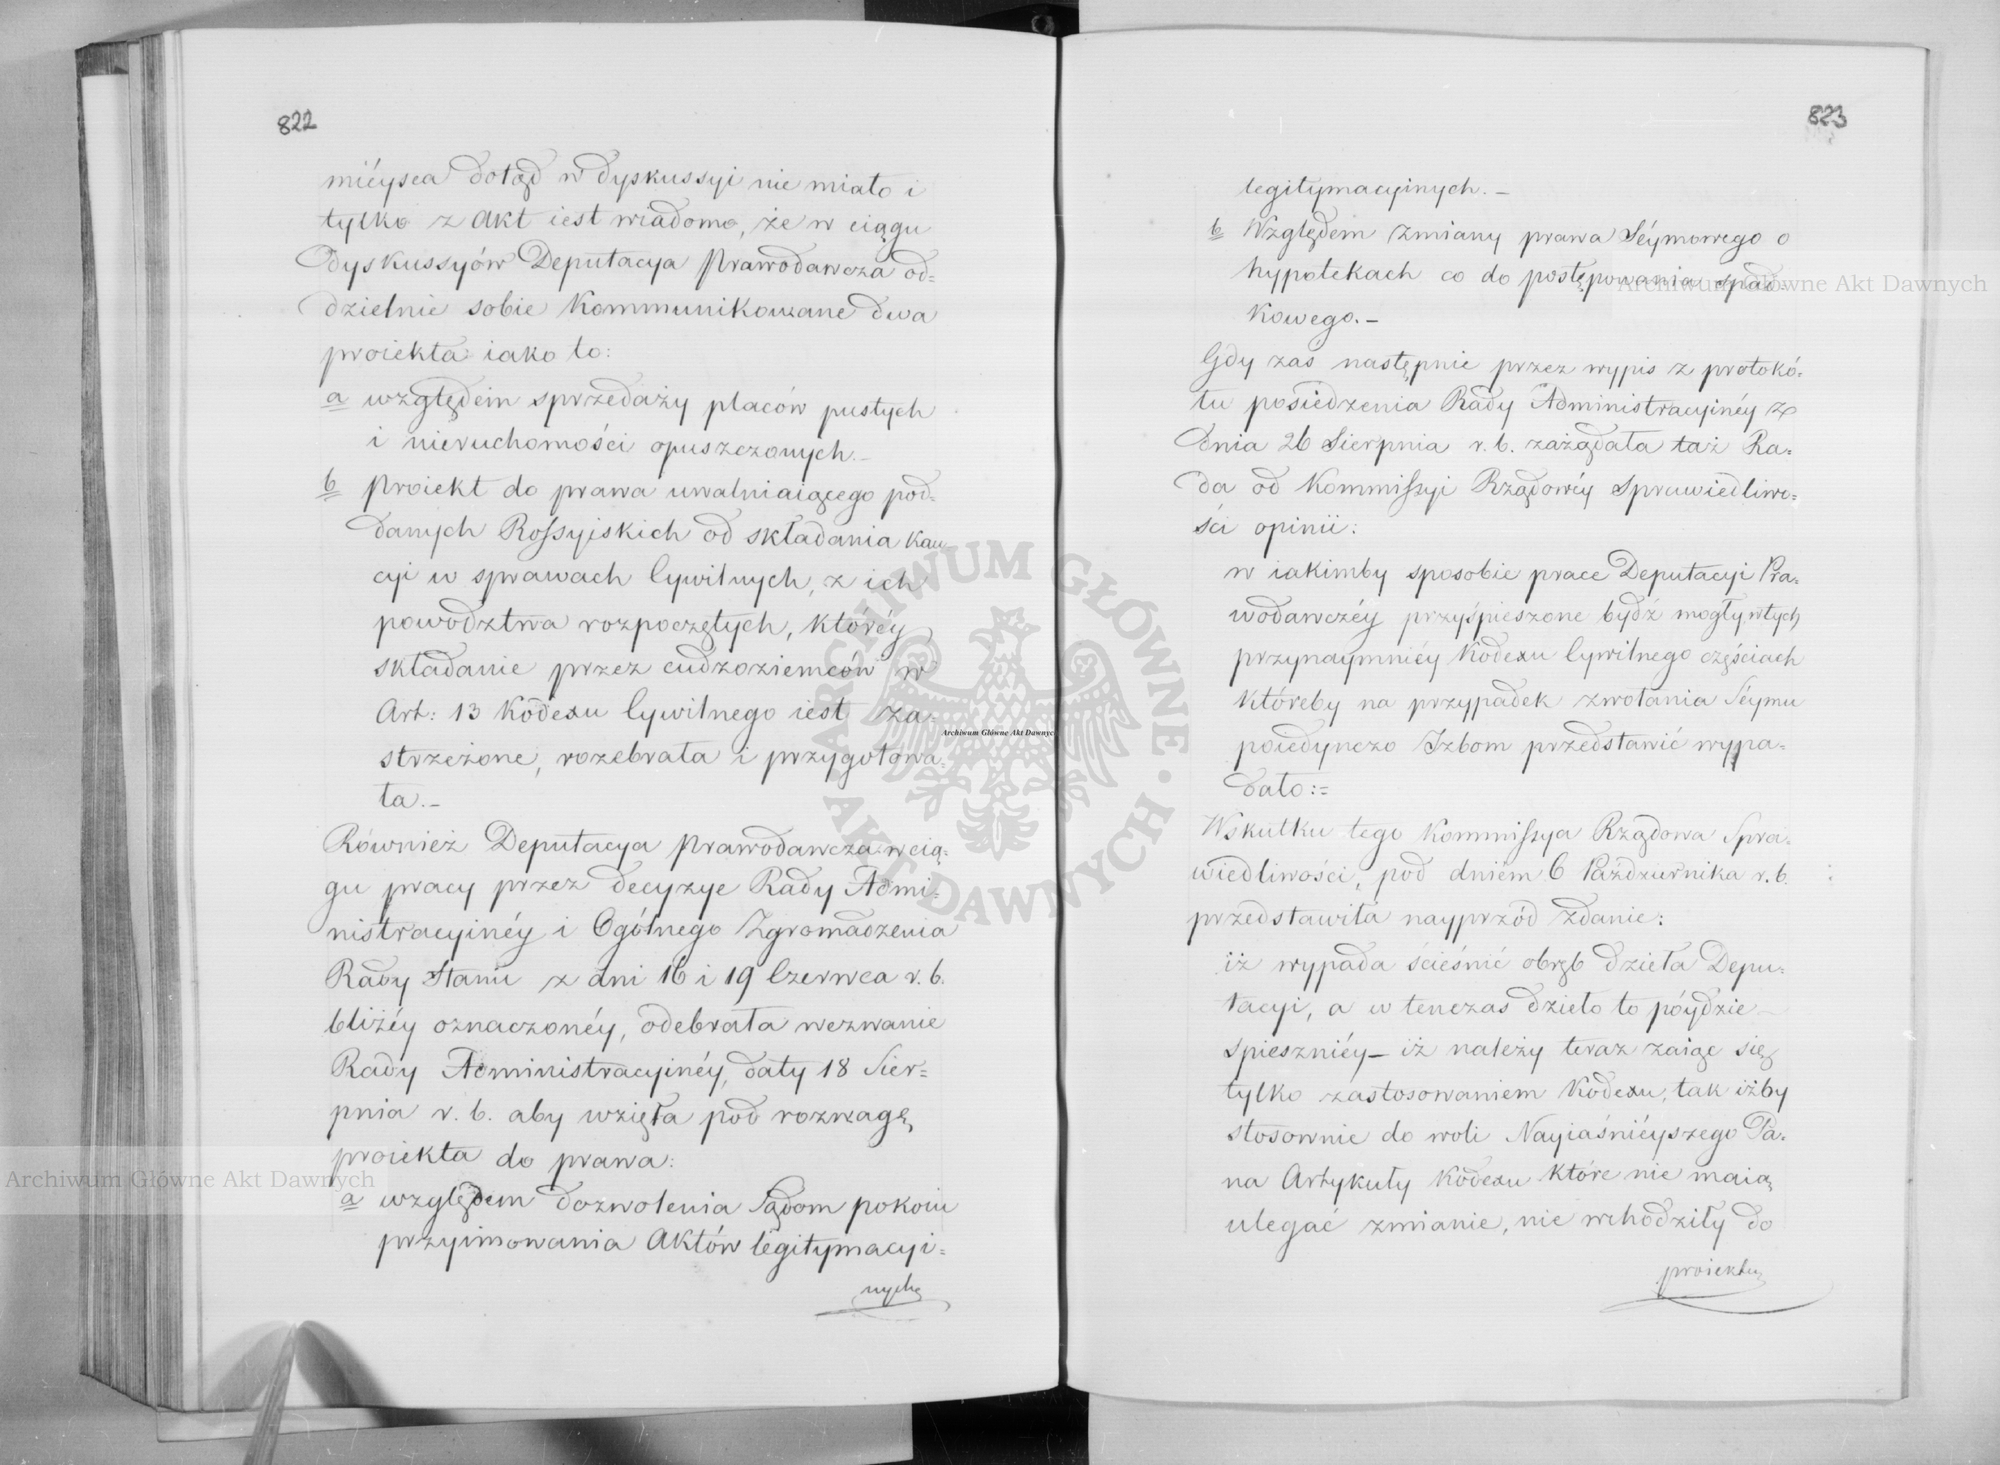 822
miéysca dotąd w dyskussyi nie miało i
tylko z Akt iest wiadomo, że w ciągu
Dyskussyów Deputacya Prawodawcza od=
dzielnie sobie Kommunikowane dwa
proiekta iako to:
a względem sprzedaży placów pustych
i nieruchomości opuszczonych.–
b Proiekt do prawa uwalniaiącego pod=
danych Rossyiskich od składania Kau
cyi w sprawach Cywilnych, z ich
powództwa rozpoczętych, któréy
składanie przez cudzoziemców w
Art: 13 Kodexu Cywilnego iest za=
strzeżone, rozebrała i przygotowa=
ła.–
Również Deputacya Prawodawcza w cią=
gu pracy przez decyzye Rady Admi=
nistracyinéy i Ogólnego Zgromadzenia
Rady Stanu z dni 16 i 19 Czerwca r. b.
bliżéy oznaczonéy, odebrała wezwanie
Rady Administracyinéy, daty 18 Sier=
pnia r. b. aby wzięła pod rozwagę
proiekta do prawa:
a względem dozwolenia Sądom pokoiu
przyimowania Aktów legitymacyi=
nych
823
legitymacyinych.–
b Względem zmiany prawa Séymowego o
hypotekach co do postępowania spad=
kowego.–
Gdy zas następnie przez wypis z protokó=
łu posiedzenia Rady Administracyinéy z
dnia 26 Sierpnia r. b. zażądała taż Ra=
da od Kommissyi Rządowéy Sprawiedliwo=
ści opinii:
w iakimby sposobie prace Deputacyi Pra=
wodawczéy przyśpieszone bydź mogły w tych
przynaymniéy Kodexu Cywilnego częściach
któreby na przypadek zwołania Séymu
poiedynczo Izbom przedstawić wypa=
dało:=
Wskutku tego Kommissya Rządowa Spra=
wiedliwości, pod dniem 6 Października r. b.
przedstawiła nayprzód zdanie:
iż wypada ścieśnić obręb dzieła Depu=
tacyi, a w tenczas dzieło to póydzie
spieszniéy– iż należy teraz zaiąc się
tylko zastosowaniem Kodexu, tak iżby
stosownie do woli Nayiaśniéyszego Pa=
na Artykuły Kodexu które nie maią
ulegać zmianie, nie wchodziły do
proiektu
ARCHIWUM GŁÓWNE AKT DAWNYCH
Archiwum Główne Akt Dawnych
Archiwum Główne Akt Dawnych
Archiwum Główne Akt Dawnyc